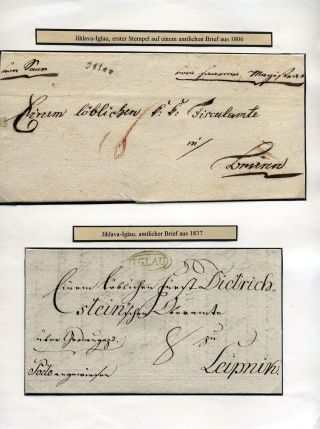 Jihlava-Iglau, erster Stempel auf einem amtlichen Brief aus 1806
von
Iglau
vom Magistrat
Einem löblichen k. k.
in
Brünn
Jihlava-Iglau, amtlicher Brief aus 1837
IGLAU
Einem löblichen Fürst Dietrich
steinischen Oberamte
über
8 zu
Leipnik